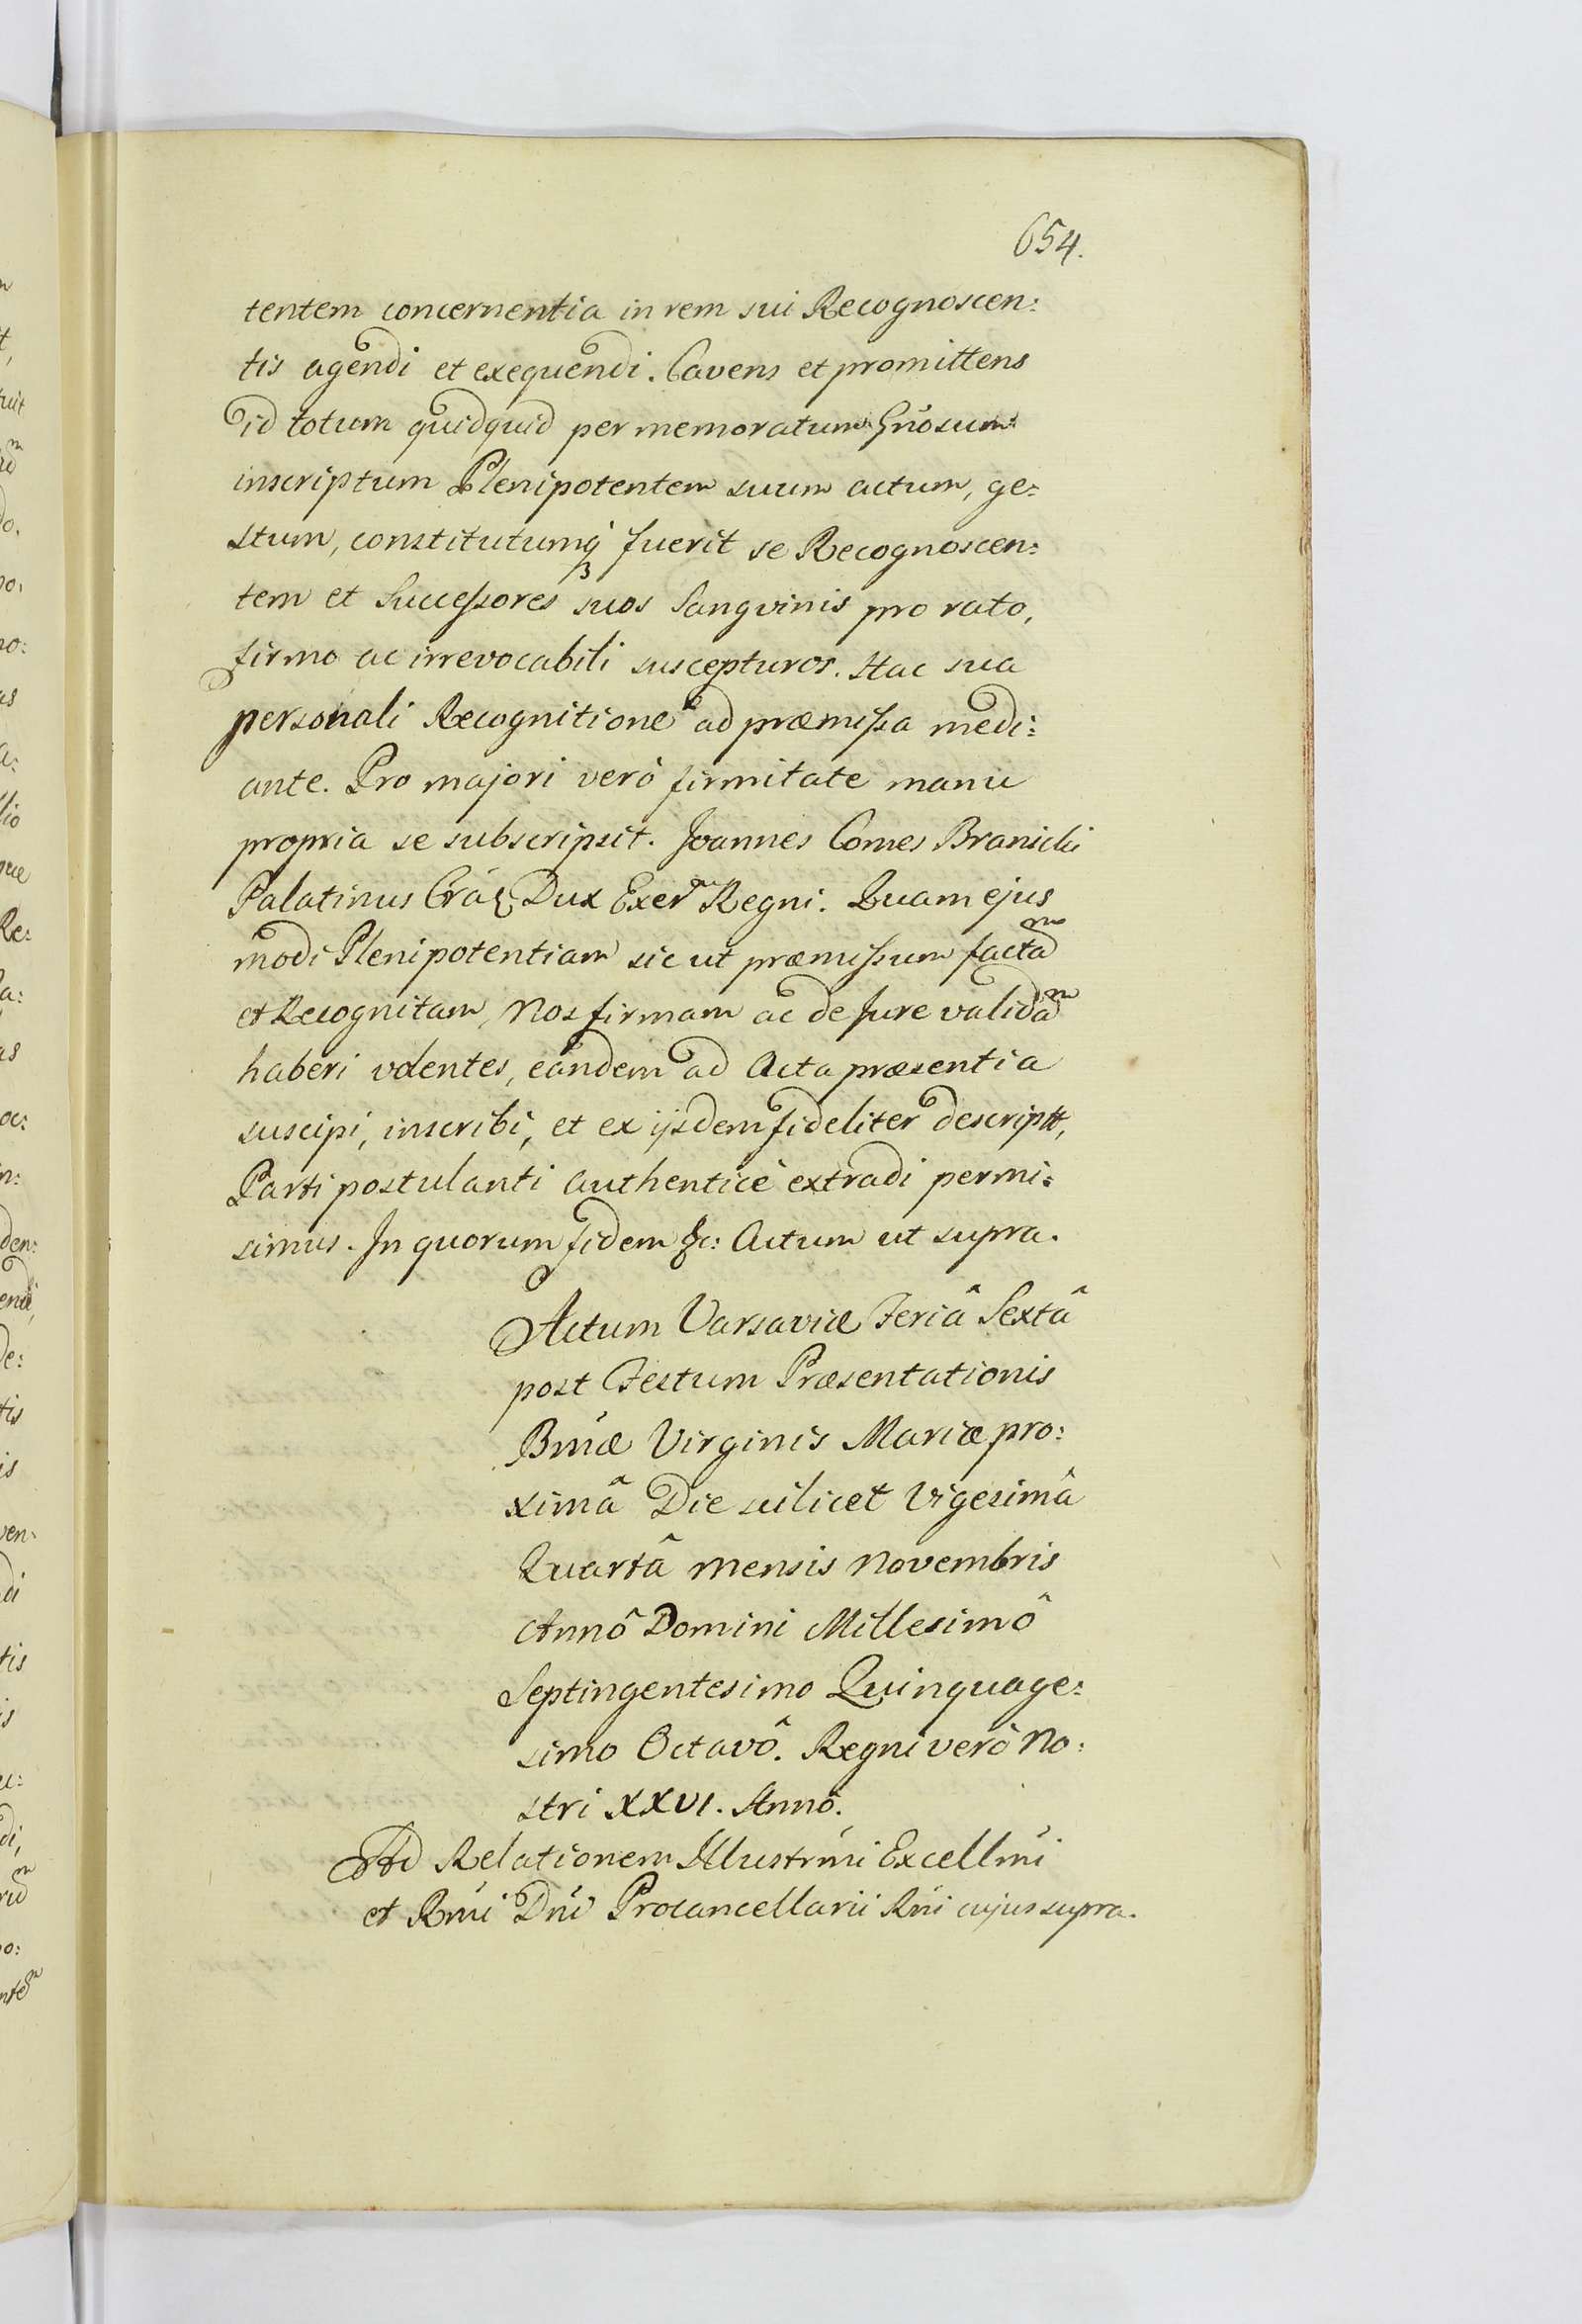 654.
tentem concernentia in rem sui Recognoscen:
tis agendi et exequendi. Cavens et promittens
id totum quidquid per memoratum Gnõsum
inscriptum Plenipotentem suum actum, ge:
stum, constitutumq́3 fuerit se Recognoscen:
tem et Successores suos Sangvinis pro rato,
firmo ac irrevocabili suscepturos. Hac sua
personali Recognitione ad præmissa medi:
ante. Pro majori verò firmitate manu
propria se subscripsit. Joannes Comes Branicki
Palatinus Dux Regni. Quam ejus
modi Plenipotentiam sic ut præmissum factaᵐ
et Recognitam, Nos firmam ac de Jure validaᵐ
haberi volentes, eandem ad Acta præsentia
suscipi, inscribi, et ex ijsdem fideliter descriptt,
Parti postulanti authenticè extradi permi:
simus. In quorum fidem &c: Actum ut supra.
Actum Varsaviæ Feriâ Sextâ
post Festum Præsentationis
Bm̃æ Virginis Mariæ pro:
ximâ Die scilicet Vigesimâ
Quartâ mensis Novembris
Annô Domini Millesimô
Septingentesimo Quinquage:
simo Octavô. Regni verò No:
stri XXVI. Annô.
Ad Relationem Illustrm̃i Excellm̃i
et Rm̃i Dñi Procancellarii Rñi cujus supra.